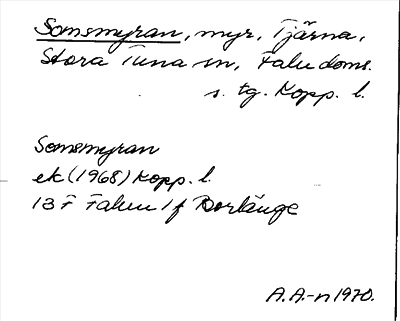 Somsmyran, myr, Tjärna,
Stora Tuna sn, Falu doms.
s. tg. Kopp. l.
Somsmyran
ek (1968) Kopp. l.
13 F Falun 1 f Borlänge
A.A.-n 1970.